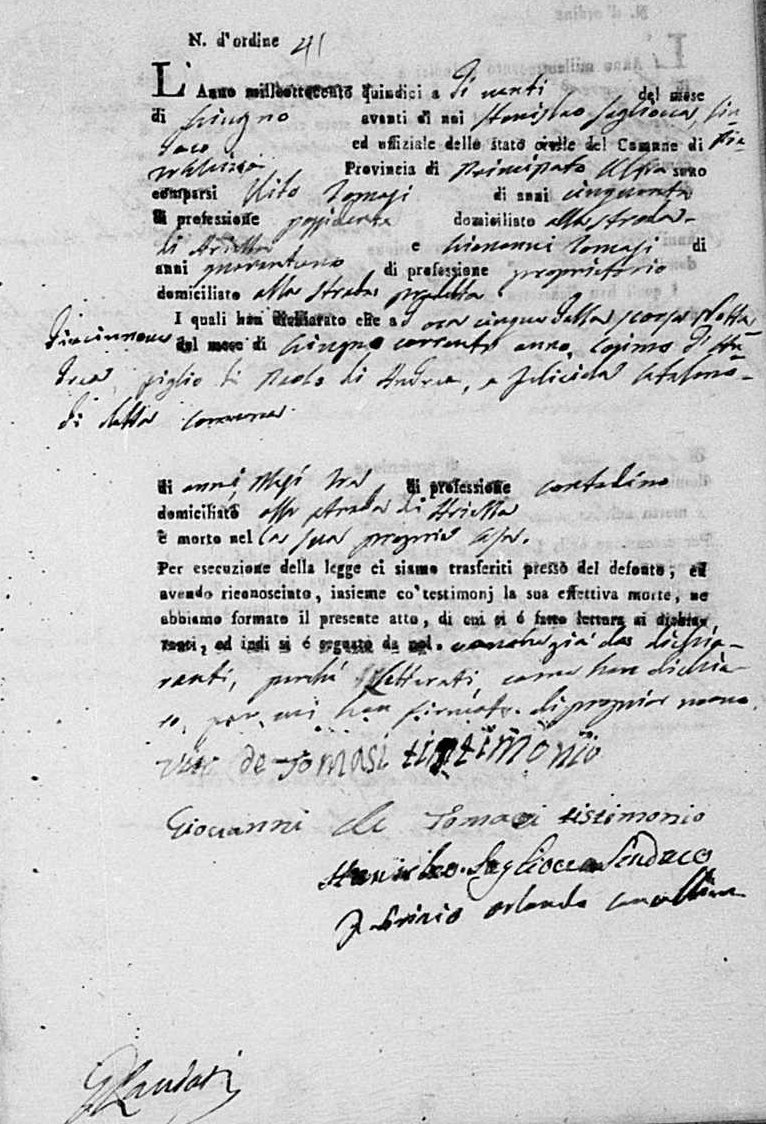 N. d'ordine 41
L'Anno milleottocento quindici a di venti del mese
di Giugno avanti di noi Stanislao Sagliocca, Sin-
daco ed uffiziale dello stato civile del Comune di
Provincia di Principato Ultra sono
comparsi Vito Tomasi di anni cinquanta
di professione possidente domiciliato alla strada
di Arietta e Giovanni Tomasi di
anni quarantuno di professione proprietario
domiciliato alla strada predetta
I quali han dichiarato che a ore cinque della scorsa notte
diecinnove del mese di Giugno corrente anno, Cosimo d'An-
drea, figlio di Paolo di Andrea, e Felicida Catalano
di detta comune
di anni, Mesi tre di professione contadino
domiciliato alla strada di Arietta
è morto nel la sua propria casa.
Per esecuzione della legge ci siamo trasferiti presso del defonto, ed
avendo riconosciuto, insieme co'testimonj la sua effettiva morte, ne
abbiamo formato il presente atto, di cui si è fatto lettura ai dichia-
ranti, ed indi si è segnato da noi. da dichia-
ranti, perchè come han dichia-
ro, per noi han firmato di propria mano.
Vito de Tomasi tintimonio
Giovanni de Tomasi tistimonio
Stanislao Sagliocca Sindaco
Orlando